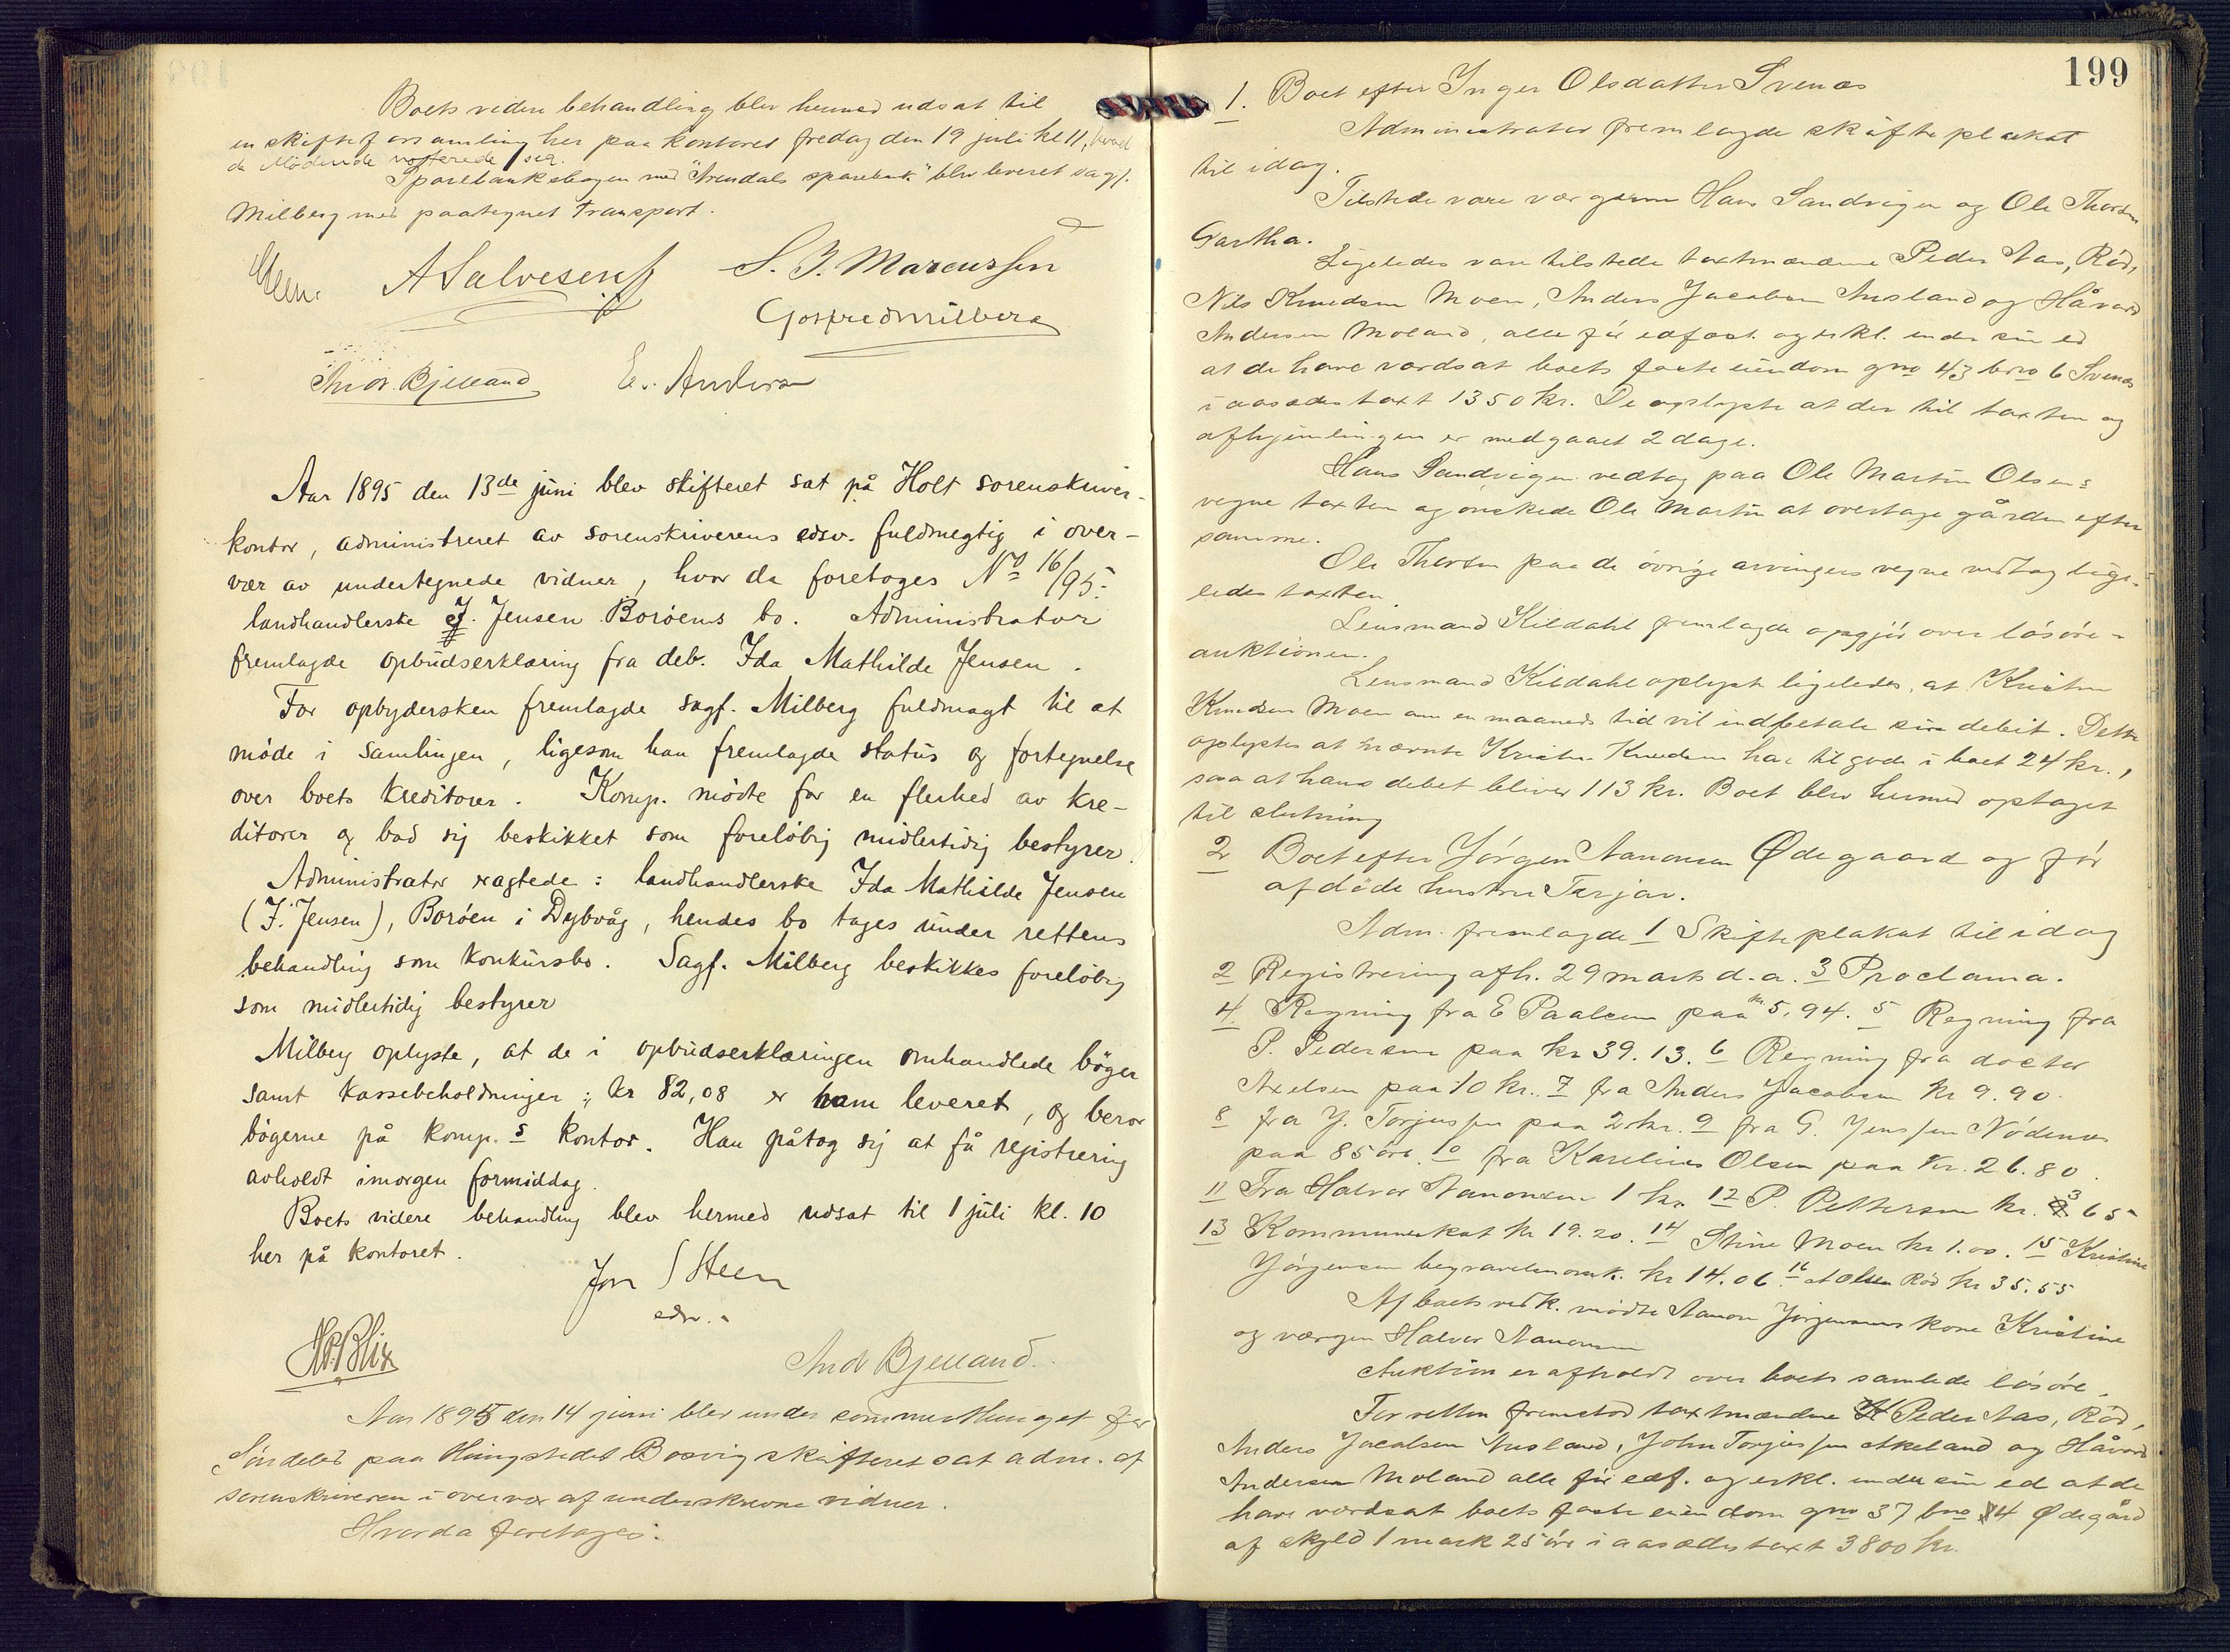 Boets videre behandling blev hermed udsat til
en skifteforsamling her paa kontoret fredag den 19 juli kl 11, hvad
de Mødende vedtog
Sparebanksbogen med "Arendals sparebank" blev leveret sagf.
Milberg med paategnet transport.
Steen. A Salvesen S. J. Marcussen
Gotfred Milberg
Andr. Bjelland E. Andersen
Aar 1895 den 13de juni blev skifteret sat på Holt sorenskriver-
kontor, administreret av sorenskriverens edsv. fuldmegtig i over-
vær av undertegnede vidner, hvor da foretoges No 16/95:
landhandlerske J. Jensen Borøens bo. Administrator
fremlagde opbudserklæring fra deb. Ida Mathilde Jensen.
For opbydersken fremlagde sagf. Milberg fuldmagt til at
møde i samlingen, ligesom han fremlagde status og fortegnelse
over boets kreditorer. Komp. mødte for en flerhed av kre-
ditorer og bad sig beskikket som foreløbig midlertidig bestyrer.
Administrator eragtede: landhandlerske Ida Mathilde Jensen
(J. Jensen), Borøen i Dybvåg, hendes bo tages under rettens
behandling som konkursbo. Sagf. Milberg beskikkes foreløbig
som midlertidig bestyrer
Milberg oplyste, at de i opbudserklæringen omhandlede bøger
samt kassebeholdninger: kr 82,08 er ham leveret, og beror
bøgerne på komp.s kontor. Han påtog sig at få registrering
avholdt imorgen formiddag.
Boets videre behandling blev hermed udsat til 1 juli kl. 10
her på kontoret.
Jon Steen
edsv.
H. Blix
Andr Bjelland.
Aar 1895 den 14 juni blev under sommerthinget for
Søndeled paa thingstedet Bosvig skifteret sat adm. af
sorenskriveren i overvær af underskrevne vidner.
Hvorda foretoges:
199
1. Boet efter Inger Olsdatter Svenes
Administrator fremlagde skifteplakat
til idag.
Tilstede vare værgerne Hans Sandvigen og Ole Thorsen
Gartha.
Ligeledes vare tilstede taxtmændene Peder Aas, Rød,
Nils Knudsen Moen, Anders Jacobsen Ausland og Håvard
Andersen Moland, alle før edfæst. og erkl. under sin ed
at de have værdsat boets faste eiendom gno 43 brno 6 Svenes
i aasædestaxt 1350 kr. De oplyste at der til taxten og
afhjemlingen er medgaaet 2 dage.
Hans Sandvigen vedtog paa Ole Martin Olsens
vegne taxten og ønskede Ole Martin at overtage gården efter
samme.
Ole Thorsen paa de øvrige arvingers vegne vedtog lige-
ledes taxten
Lensmand Kildahl fremlagde opgjør over løsøre-
auktionen.
Lensmand Kildahl oplyste ligeledes, at Kristen
Knudsen Moen om en maaneds tid vil indbetale sin debit. Dette
oplystes at nævnte Kristen Knudsen har til gode i boet 24 kr.,
saa at hans debet bliver 113 kr. Boet blev hermed optaget
til slutning
2 Boet efter Jørgen Aanonsen Ødegaard og før
afdøde hustru Torjer.
Adm. fremlagde 1 Skifteplakat til idag
2 Registrering afh. 29 marts d. a. 3 Proclama.
4. Regning fra E Paalsen paa kr 5,94. 5 Regning fra
P. Pedersen paa kr 39.13. 6 Regning fra doctor
Axelsen paa 10 kr. 7 fra Anders Jacobsen kr 9.90.
8 fra J. Torjussen paa 2 kr. 9 fra G. Jenssen Nødenes
paa 85 øre. 10 fra Karelius Olsen paa kr. 26.80.
11 Fra Halvor Aanonsen 1 kr. 12 P. Pettersen kr. 3 65
13 Kommuneskat kr 19.20. 14 Stine Moen kr 1.00. 15 Kristine
Jørgensen begravelsesomk. kr 14.06. 16 at Olsen Rød kr 35.55
Af boets vedk. mødte Aanon Jørgensens kone Kristine
og værgen Halvor Aanonsen
Auktion er afholdt over boets samlede løsøre.
For retten fremstod taxtmændene Peder Aas, Rød,
Anders Jacobsen Ausland, John Torjussen Akeland og Håvard
Andersen Moland alle før edf. og erkl. under sin ed at de
have værdsat boets faste eiendom gno 37 bno 4 Ødegård
af skyld 1 mark 25 øre i aasædestaxt 3800 kr.